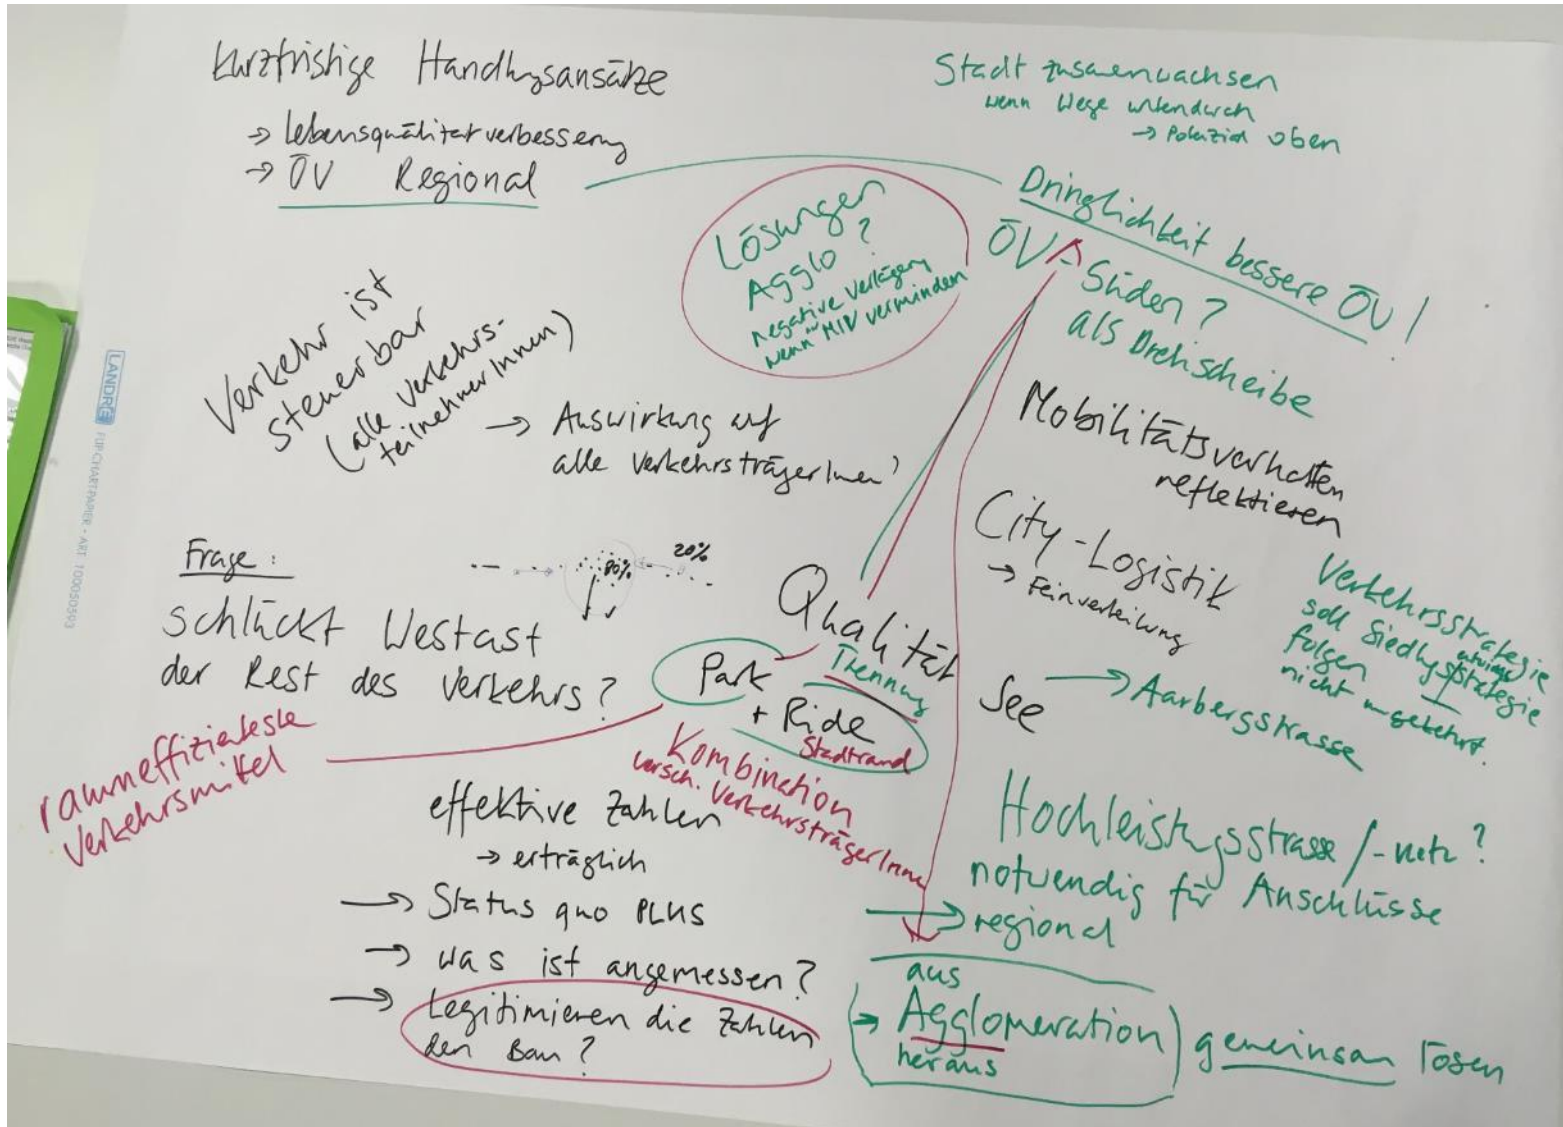 Kurzfristige Handlungsansätze
→ Lebensqualität verbesserung
→ ÖV Regional
Stadt zusammenwachsen
wenn Wege untendurch
→ Potenzial oben
Dringlichkeit bessere ÖV!
ÖV
Süden?
als Drehscheibe
Lösungen
Agglo?
negative Verlagerg
wenn MIV vermindern
Verkehr ist
steuerbar
(alle Verkehrs-
teilnehmerInnen)
→ Auswirkung auf
alle VerkehrsträgerInnen
Mobilitätsverhalten
reflektieren
City-Logistik
→ Feinverteilung
Verkehrsstrategie
soll Siedlgsstrategie
folgen
nicht umgekehrt.
Frage:
schluckt Westast
der Rest des Verkehrs?
80%
20%
Qualität
Trennung
Park
+ Ride
Stadtrand
Kombination
versch. VerkehrsträgerInnen
raumeffizienteste
Verkehrsmittel
See → Aarbergstrasse
effektive Zahlen
→ erträglich
→ Status quo PLUS
→ was ist angemessen?
→ Legitimieren die Zahlen
den Bau?
Hochleistgsstrasse/-netz?
notwendig für Anschlüsse
→ regional
aus
→ Agglomeration
heraus
gemeinsam lösen
LANDRÉ FLIPCHARTPAPIER • ART. 100050593